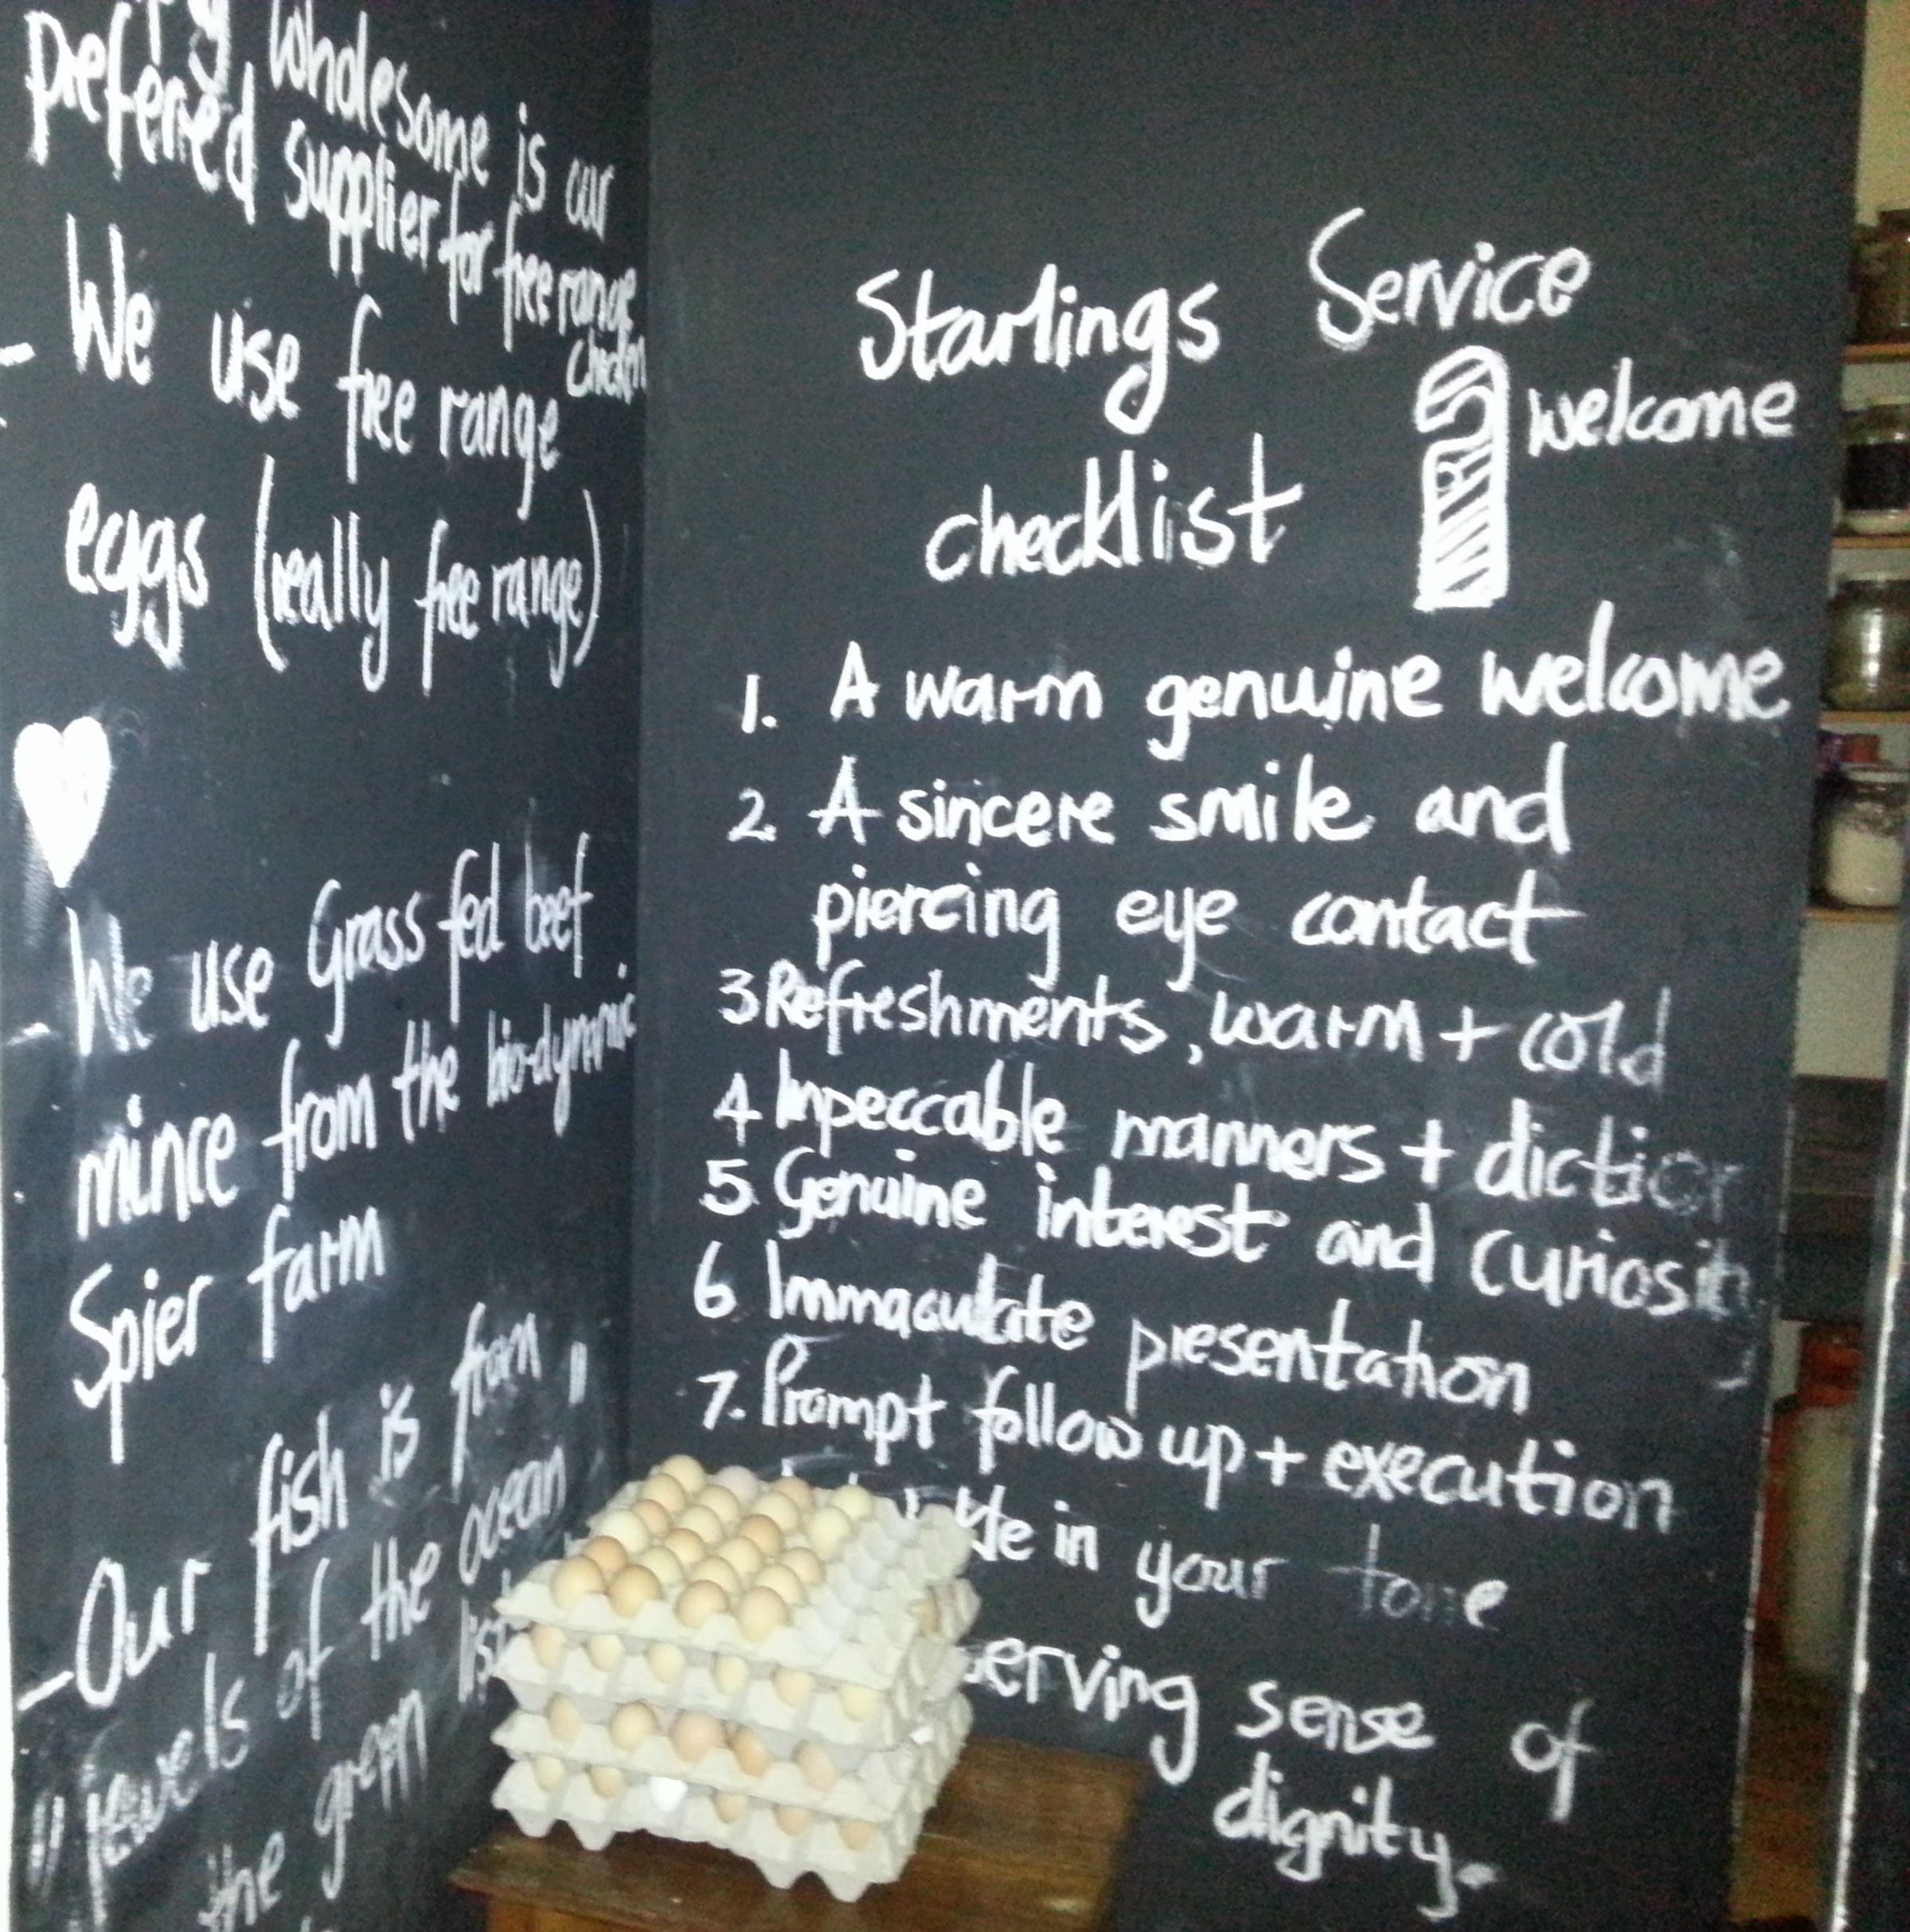 wholesome is our
preferred supplier for free range
chicken
- We use free range
eggs (really free range)
We use Grass fed beef
mince from the bio-dynamic
Spier farm
- Our fish is from
"jewels of the ocean"
the green list
Starlings Service
checklist
welcome
1. A warm genuine welcome
2. A sincere smile and
piercing eye contact
3 Refreshments, warm + cold
4 Impeccable manners + diction
5. Genuine interest and curiosity
6 Immaculate presentation
7. Prompt follow up + execution
in your tone
sense of
dignity.